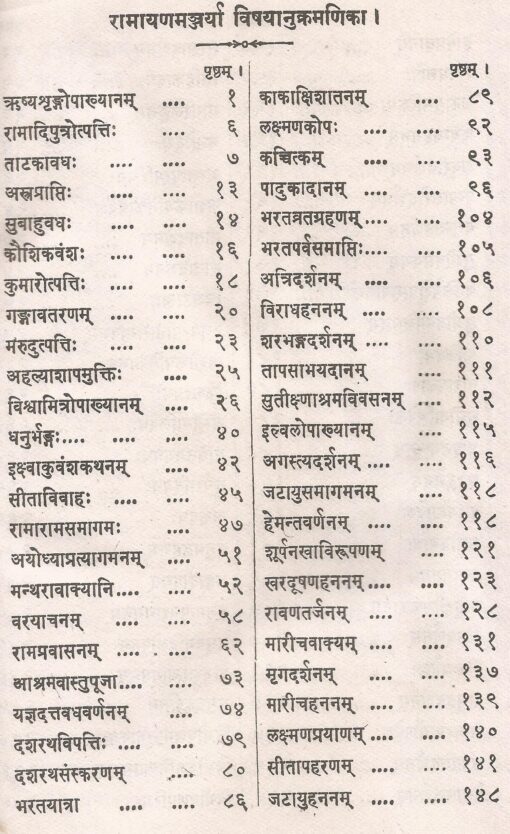 रामायणमञ्जर्या विषयानुक्रमणिका ।
पृष्ठम् ।
ऋष्यशृङ्गोपाख्यानम् .... १
रामादिपुत्रोत्पत्तिः .... ६
ताटकावधः .... .... ७
अस्त्रप्राप्तिः .... .... १३
सुबाहुवधः .... .... १४
कौशिकवंशः .... .... १६
कुमारोत्पत्तिः .... .... १८
गङ्गावतरणम् .... .... २०
मरुदुत्पत्तिः .... .... २३
अहल्याशापमुक्तिः .... २५
विश्वामित्रोपाख्यानम् .... २६
धनुर्भङ्गः.... .... .... ४०
इक्ष्वाकुवंशकथनम् .... ४२
सीताविवाहः .... .... ४५
रामारामसमागमः .... ४७
अयोध्याप्रत्यागमनम् .... ५१
मन्थरावाक्यानि.... .... ५२
वरयाचनम् .... .... ५८
रामप्रवासनम् .... .... ६२
आश्रमवास्तुपूजा.... .... ७३
यज्ञदत्तवधवर्णनम् .... ७४
दशरथविपत्तिः .... .... ७९
दशरथसंस्करणम् .... ८०
भरतयात्रा .... .... ८६
पृष्ठम् ।
काकाक्षिशातनम् .... ८९
लक्ष्मणकोपः .... .... ९२
कच्चित्कम् .... .... ९३
पादुकादानम् .... .... ९६
भरतव्रतग्रहणम् .... .... १०४
भरतपर्वसमाप्तिः .... १०५
अत्रिदर्शनम् .... .... १०६
विराधहननम् .... .... १०८
शरभङ्गदर्शनम् .... .... ११०
तापसाभयदानम् .... १११
सुतीक्ष्णाश्रमविवसनम् .... ११२
इल्वलोपाख्यानम् .... ११५
अगस्त्यदर्शनम् .... .... ११६
जटायुसमागमनम् .... ११८
हेमन्तवर्णनम् .... .... ११८
शूर्पनखाविरूपणम् .... १२१
खरदूषणहननम् .... .... १२३
रावणतर्जनम् .... .... १२८
मारीचवाक्यम् .... .... १३१
मृगदर्शनम् .... .... १३७
मारीचहननम् .... .... १३९
लक्ष्मणप्रयाणम् .... .... १४०
सीतापहरणम् .... .... १४१
जटायुहननम् .... .... १४८